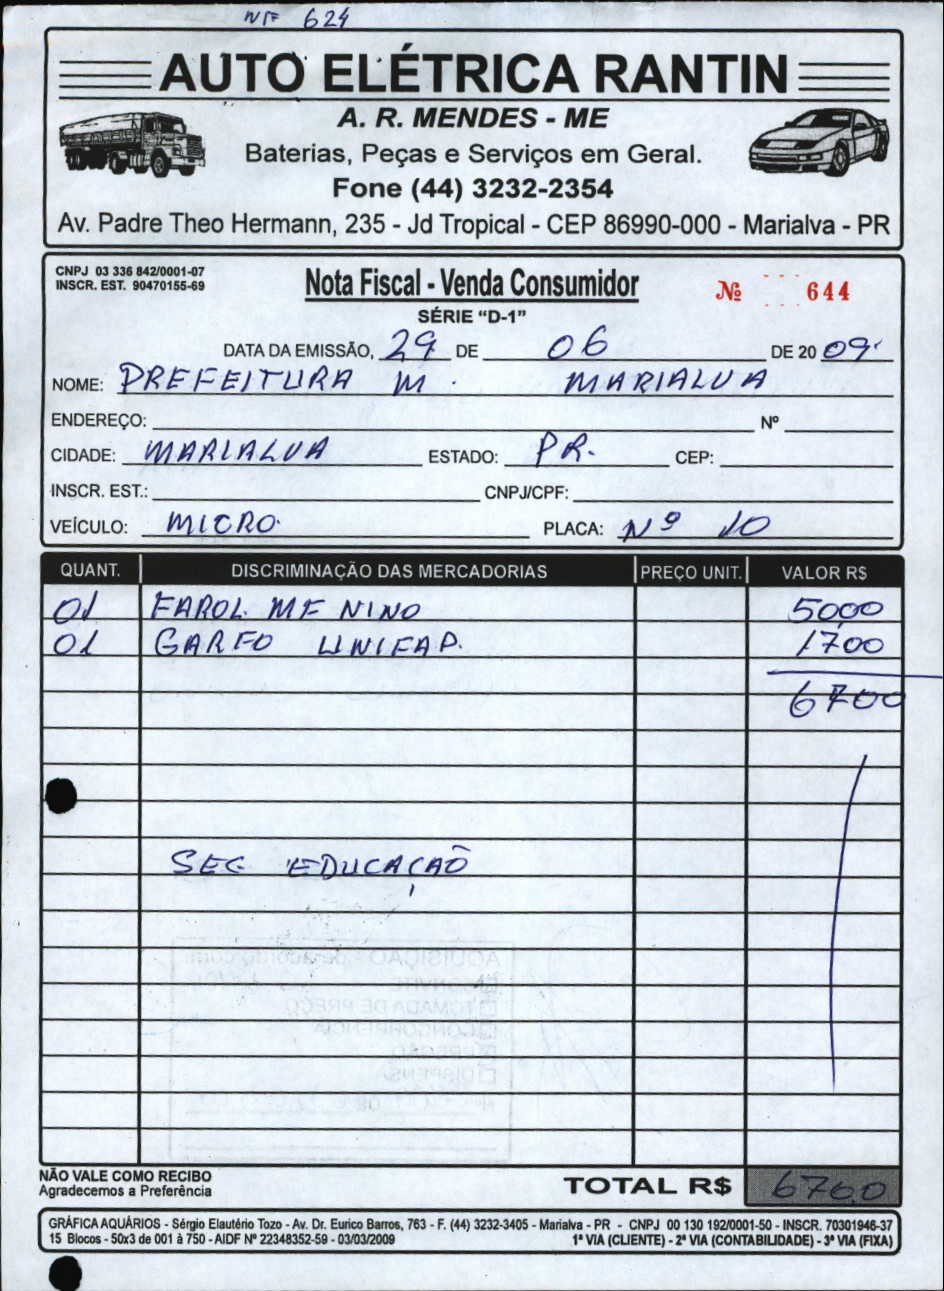 NF 624
AUTO ELÉTRICA RANTIN
A. R. MENDES - ME
Baterias, Peças e Serviços em Geral.
Fone (44) 3232-2354
Av. Padre Theo Hermann, 235 - Jd Tropical - CEP 86990-000 - Marialva - PR
CNPJ 03 336 842/0001-07
INSCR. EST. 90470155-69
Nota Fiscal - Venda Consumidor
Nº 644
SÉRIE "D-1"
DATA DA EMISSÃO, 29 DE 06 DE 2009
NOME: PREFEITURA M. MARIALVA
ENDEREÇO: Nº
CIDADE: MARIALVA ESTADO: PR. CEP:
INSCR. EST.: CNPJ/CPF:
VEÍCULO: MICRO. PLACA: Nº 10
QUANT. DISCRIMINAÇÃO DAS MERCADORIAS PREÇO UNIT. VALOR R$
01 FAROL MF NINO 50,00
01 GARFO UNIFAP. 17,00
67,00
SEC EDUCAÇÃO
AQUISIÇÃO - de acordo com
CONVITE
TOMADA DE PREÇO
CONCORRÊNCIA
PREGÃO
DISPENSA
NÃO VALE COMO RECIBO
Agradecemos a Preferência
TOTAL R$ 67,00
GRÁFICA AQUÁRIOS - Sérgio Elautério Tozo - Av. Dr. Eurico Barros, 763 - F. (44) 3232-3405 - Marialva - PR - CNPJ 00 130 192/0001-50 - INSCR. 70301946-37
15 Blocos - 50x3 de 001 à 750 - AIDF Nº 22348352-59 - 03/03/2009 1ª VIA (CLIENTE) - 2ª VIA (CONTABILIDADE) - 3ª VIA (FIXA)